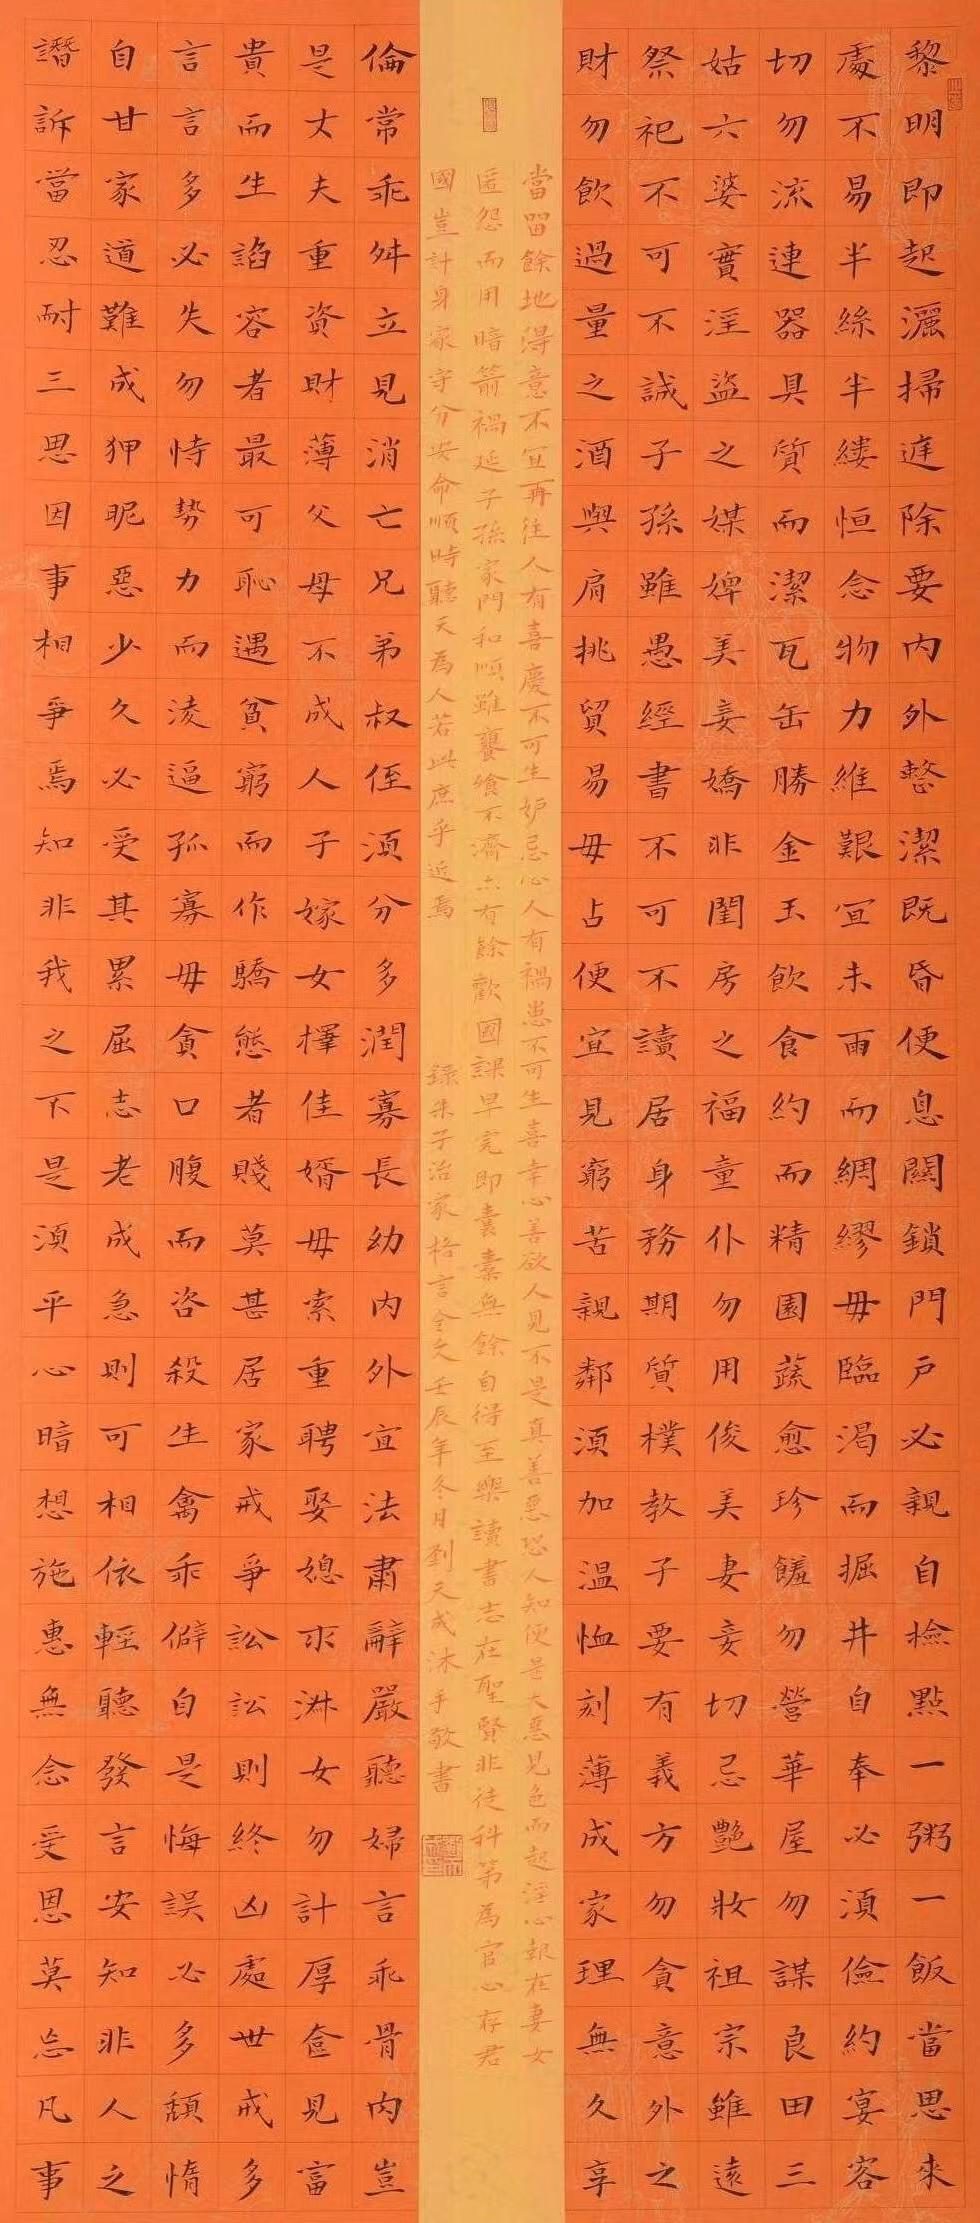 黎明即起灑掃庭除要内外整潔既昏便息關鎖門戶必親自檢點一粥一飯當思來
處不易半絲半縷恒念物力維艱宜未雨而綢繆毋臨渴而掘井自奉必須儉約宴客
切勿流連器具質而潔瓦缶勝金玉飲食約而精園蔬愈珍饈勿營華屋勿謀良田三
姑六婆實淫盜之媒婢美妾嬌非閨房之福童仆勿用俊美妻妾切忌艷妝祖宗雖遠
祭祀不可不誠子孫雖愚經書不可不讀居身務期質樸教子要有義方勿貪意外之
財勿飲過量之酒與肩挑貿易毋占便宜見窮苦親鄰須加温恤刻薄成家理無久享
倫常乖舛立見消亡兄弟叔侄須分多潤寡長幼内外宜法肅辭嚴聽婦言乖骨肉豈
是丈夫重資財薄父母不成人子嫁女擇佳婿毋索重聘娶媳求淋女勿計厚奩見富
貴而生諂容者最可恥遇貧窮而作驕態者賤莫甚居家戒爭訟訟則終凶處世戒多
言言多必失勿恃勢力而淩逼孤寡毋貪口腹而咨殺生禽乖僻自是悔誤必多頹惰
自甘家道難成狎昵惡少久必受其累屈志老成急則可相依輕聽發言安知非人之
譖訴當忍耐三思因事相爭焉知非我之不是須平心暗想施惠無念受恩莫忘凡事
當留餘地得意不宜再往人有喜慶不可生妒忌心人有禍患不可生喜幸心善欲人見不是真善惡恐人知便是大惡見色而起淫心報在妻女
匿怨而用暗箭禍延子孫家門和順雖饔飧不濟亦有餘歡國課早完即囊橐無餘自得至樂讀書志在聖賢非徒科第為官心存君
國豈計身家守分安命順時聽天為人若此庶乎近焉 錄朱子治家格言全文壬辰年冬月劉天成沐手敬書